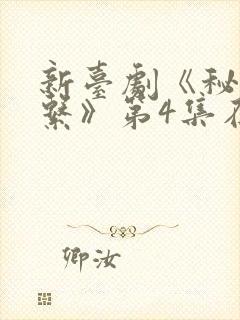 新臺劇《秘
繫》第4集在
卿汝